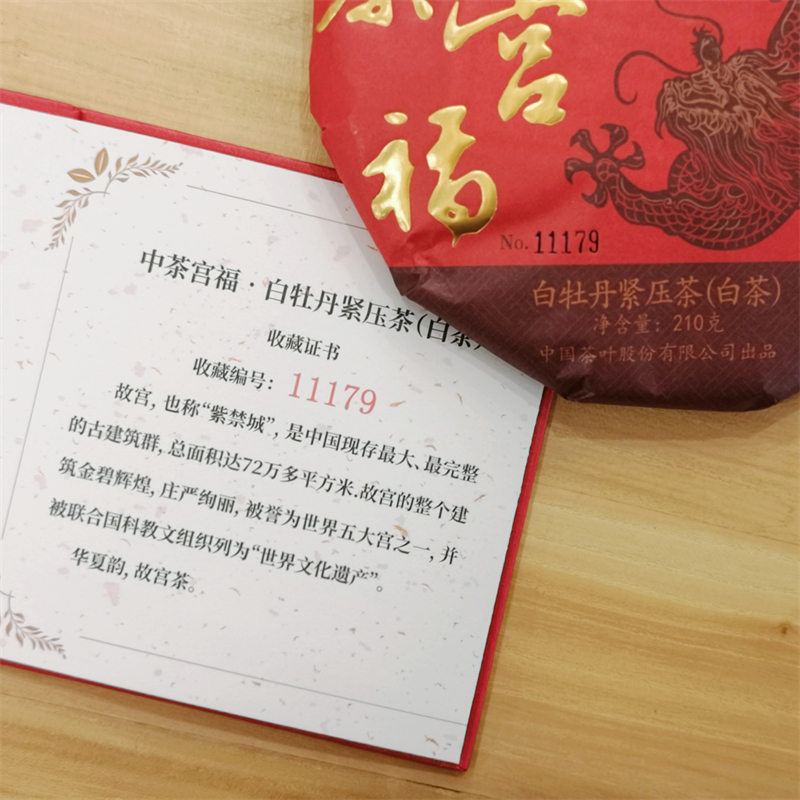 中茶宫福·白牡丹紧压茶(白茶)
收藏证书
收藏编号: 11179
故宫, 也称“紫禁城”, 是中国现存最大、最完整
的古建筑群, 总面积达72万多平方米.故宫的整个建
筑金碧辉煌, 庄严绚丽, 被誉为世界五大宫之一, 并
被联合国科教文组织列为“世界文化遗产”。
华夏韵, 故宫茶。
宫
福
No. 11179
白牡丹紧压茶(白茶)
净含量: 210克
中国茶叶股份有限公司出品